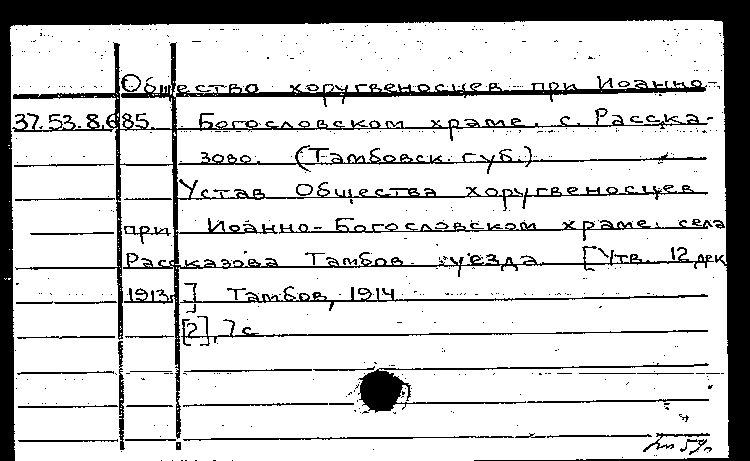 Общество хоругвеносцев при Иоанно-
37.53.8.685. Богословском храме. с. Расска-
зово. (Тамбовск. губ.)
Устав Общества хоругвеносцев
при Иоанно-Богословском храме. села
Рассказова Тамбов. уезда. [Утв. 12 дек
1913г] Тамбов, 1914
[2], 7 с